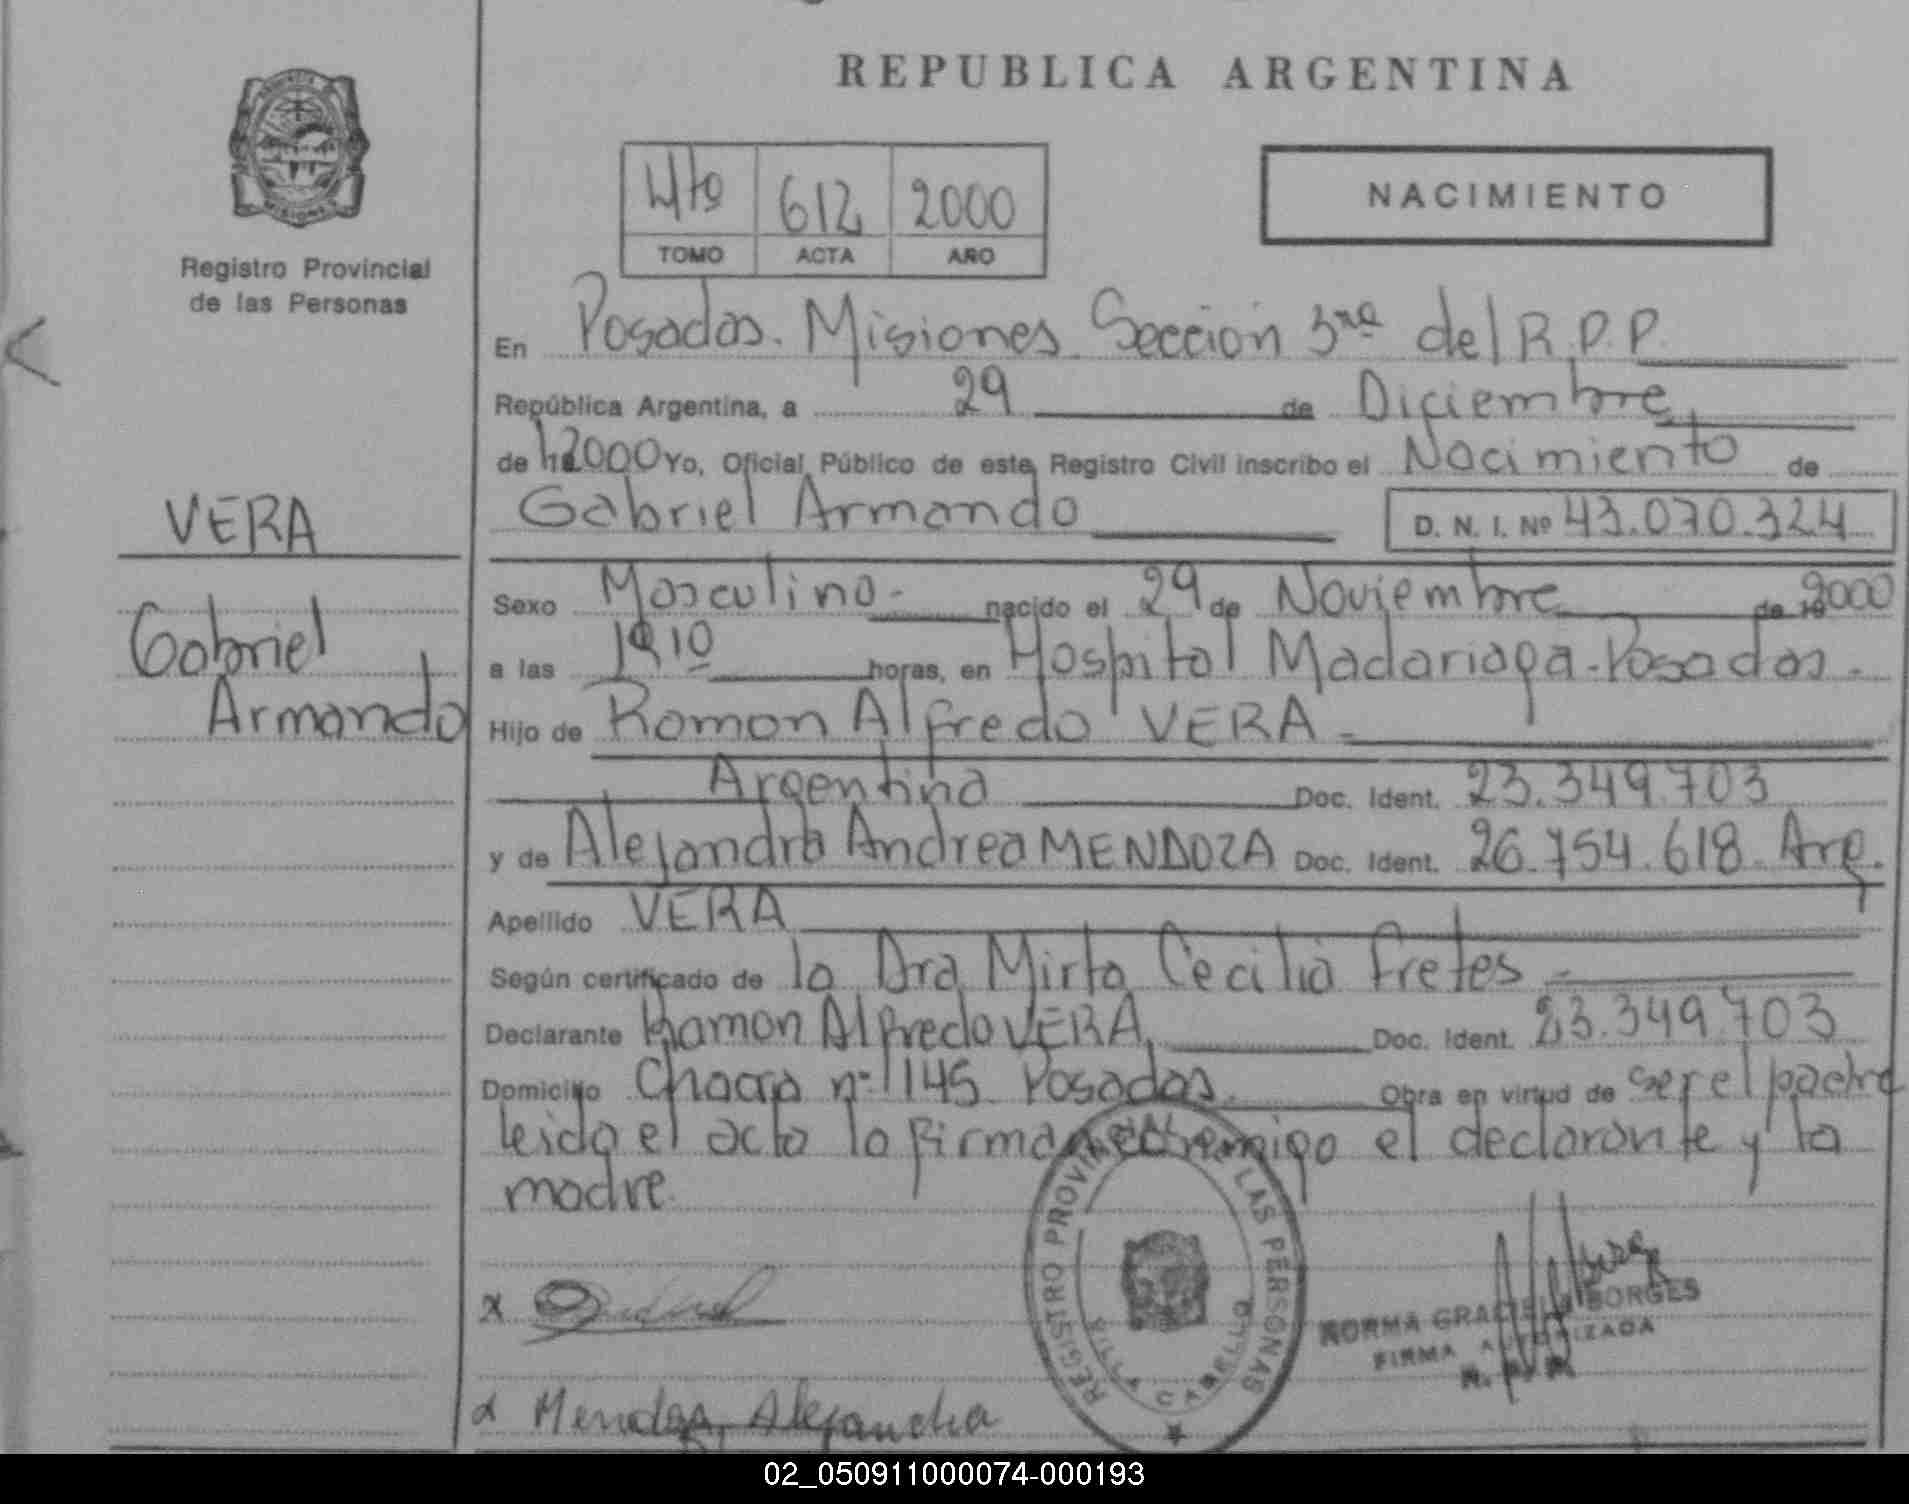 REPUBLICA ARGENTINA
MISIONES
Registro Provincial
de las Personas
4to 612 2000
TOMO ACTA AÑO
NACIMIENTO
En Posadas. Misiones Seccion 3ra del R.P.P.
República Argentina, a 29 de Diciembre
de 2000 Yo, Oficial Público de este Registro Civil inscribo el Nacimiento de
Gabriel Armando D. N. I. Nº 43.070.324
VERA
Gabriel
Armando
Sexo Masculino- nacido el 29 de Noviembre de 2000
a las 1910 horas, en Hospital Madariaga-Posadas-
Hijo de Ramon Alfredo VERA-
Argentina Doc. Ident. 23.349.703
y de Alejandra Andrea MENDOZA Doc. Ident. 26.754.618 Arg.
Apellido VERA
Según certificado de la Dra Mirta Cecilia Fretes-
Declarante Ramon Alfredo VERA. Doc. Ident. 23.349.703
Domicilio Chacra nº 145 Posadas. Obra en virtud de ser el padre
leida el acta la firman conmigo el declarante y la
madre.
REGISTRO PROVINCIAL DE LAS PERSONAS
VILLA CABELLO
NORMA GRACIELA BORGES
FIRMA AUTORIZADA
Mendoza Alejandra
02_050911000074-000193